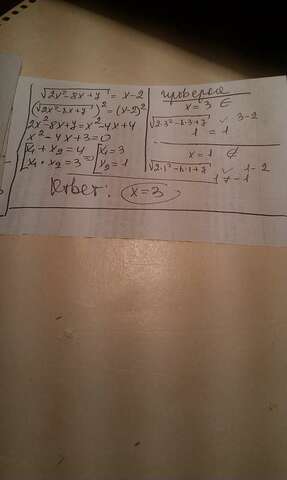 √2x²-8x+7 = x-2
(√2x²-8x+7)² = (x-2)²
2x²-8x+7 = x²-4x+4
x²-4x+3=0
x₁+x₂=4
x₁·x₂=3 => x₁=3
x₂=1
проверка
x=3 ∈
√2·3²-8·3+7 ✓ 3-2
1 = 1
x=1 ∉
√2·1²-8·1+7 ✓ 1-2
1 ≠ -1
Ответ: x=3